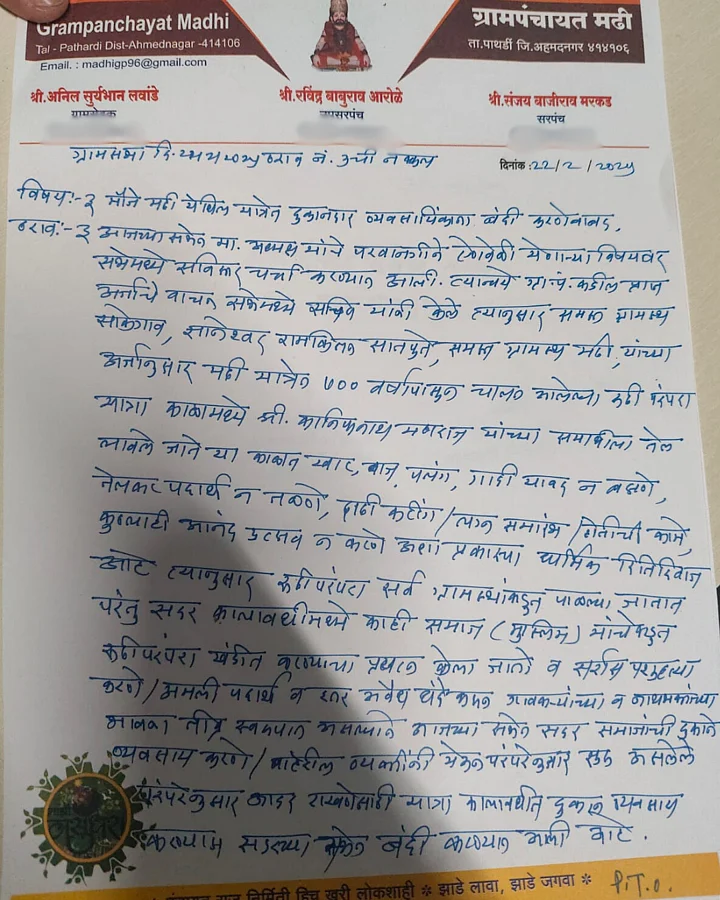 Grampanchayat Madhi
Tal - Pathardi Dist-Ahmednagar -414106
Email. : madhigp96@gmail.com
ग्रामपंचायत मढी
ता.पाथर्डी जि.अहमदनगर ४१४१०६
श्री.अनिल सुर्यभान लवांडे
ग्रामसेवक
श्री.रविंद्र बाबुराव आरोळे
उपसरपंच
श्री.संजय बाजीराव मरकड
सरपंच
ग्रामसभा दि. ठराव नं. ३ ची नक्कल
दिनांक :22/2/2025
विषय:- ३ मौजे मढी येथिल यात्रेत दुकानदार व्यवसायिकांना बंदी करणेबाबत,
ठराव:- ३ आजच्या सभेत मा. अध्यक्ष यांचे परवानगीने ऐनवेळी येणाऱ्या विषयावर
सभेमध्ये सविस्तर चर्चा करण्यात आली. त्यान्वये ग्रा.पं. कडील प्राप्त
अर्जाचे वाचन सभेमध्ये सचिव यांनी केले त्यानुसार समस्त ग्रामस्थ
ज्ञानेश्वर रामकिसन सातपुते, समस्त ग्रामस्थ मढी, यांच्या
अर्जानुसार मढी यात्रेत ७०० वर्षापासुन चालत आलेल्या रुढी परंपरा
यात्रा काळामध्ये श्री. कानिफनाथ महाराज यांच्या समाधीला तेल
लावले जाते या काळात खाट, बाज, पलंग, गादी यावर न बसणे,
तेलकट पदार्थ न तळणे, दाढी कटींग/लग्न समारंभ/शेतीची कामे,
कुठल्याही आनंद उत्सव न करणे अशा प्रकारच्या धार्मिक रितिरिवाज
आहे त्यानुसार रुढीपरंपरा सर्व ग्रामस्थांकडुन पाळल्या जातात
परंतु सदर कालावधीमध्ये काही समाज (मुस्लिम) यांचेकडुन
रुढीपरंपरा खंडीत करण्याचा प्रयत्न केला जातो व सर्रास पशुहत्या
करणे/अमली पदार्थ व इतर अवैध धंदे करुन गावकऱ्यांच्या व नाथभक्तांच्या
भावना तीव्र स्वरुपात असल्याने आजच्या सभेत सदर समाजाची दुकाने
व्यवसाय करणे/बाहेरील व्यक्तींनी येऊन परंपरेनुसार सुरु असलेले
परंपरेनुसार आदर राखणेसाठी यात्रा कालावधीत दुकान व्यवसाय
करण्यास सदरच्या सभेत बंदी करण्यात आली आहे.
निर्मिती हिच खरी लोकशाही * झाडे लावा, झाडे जगवा *
P.T.O.